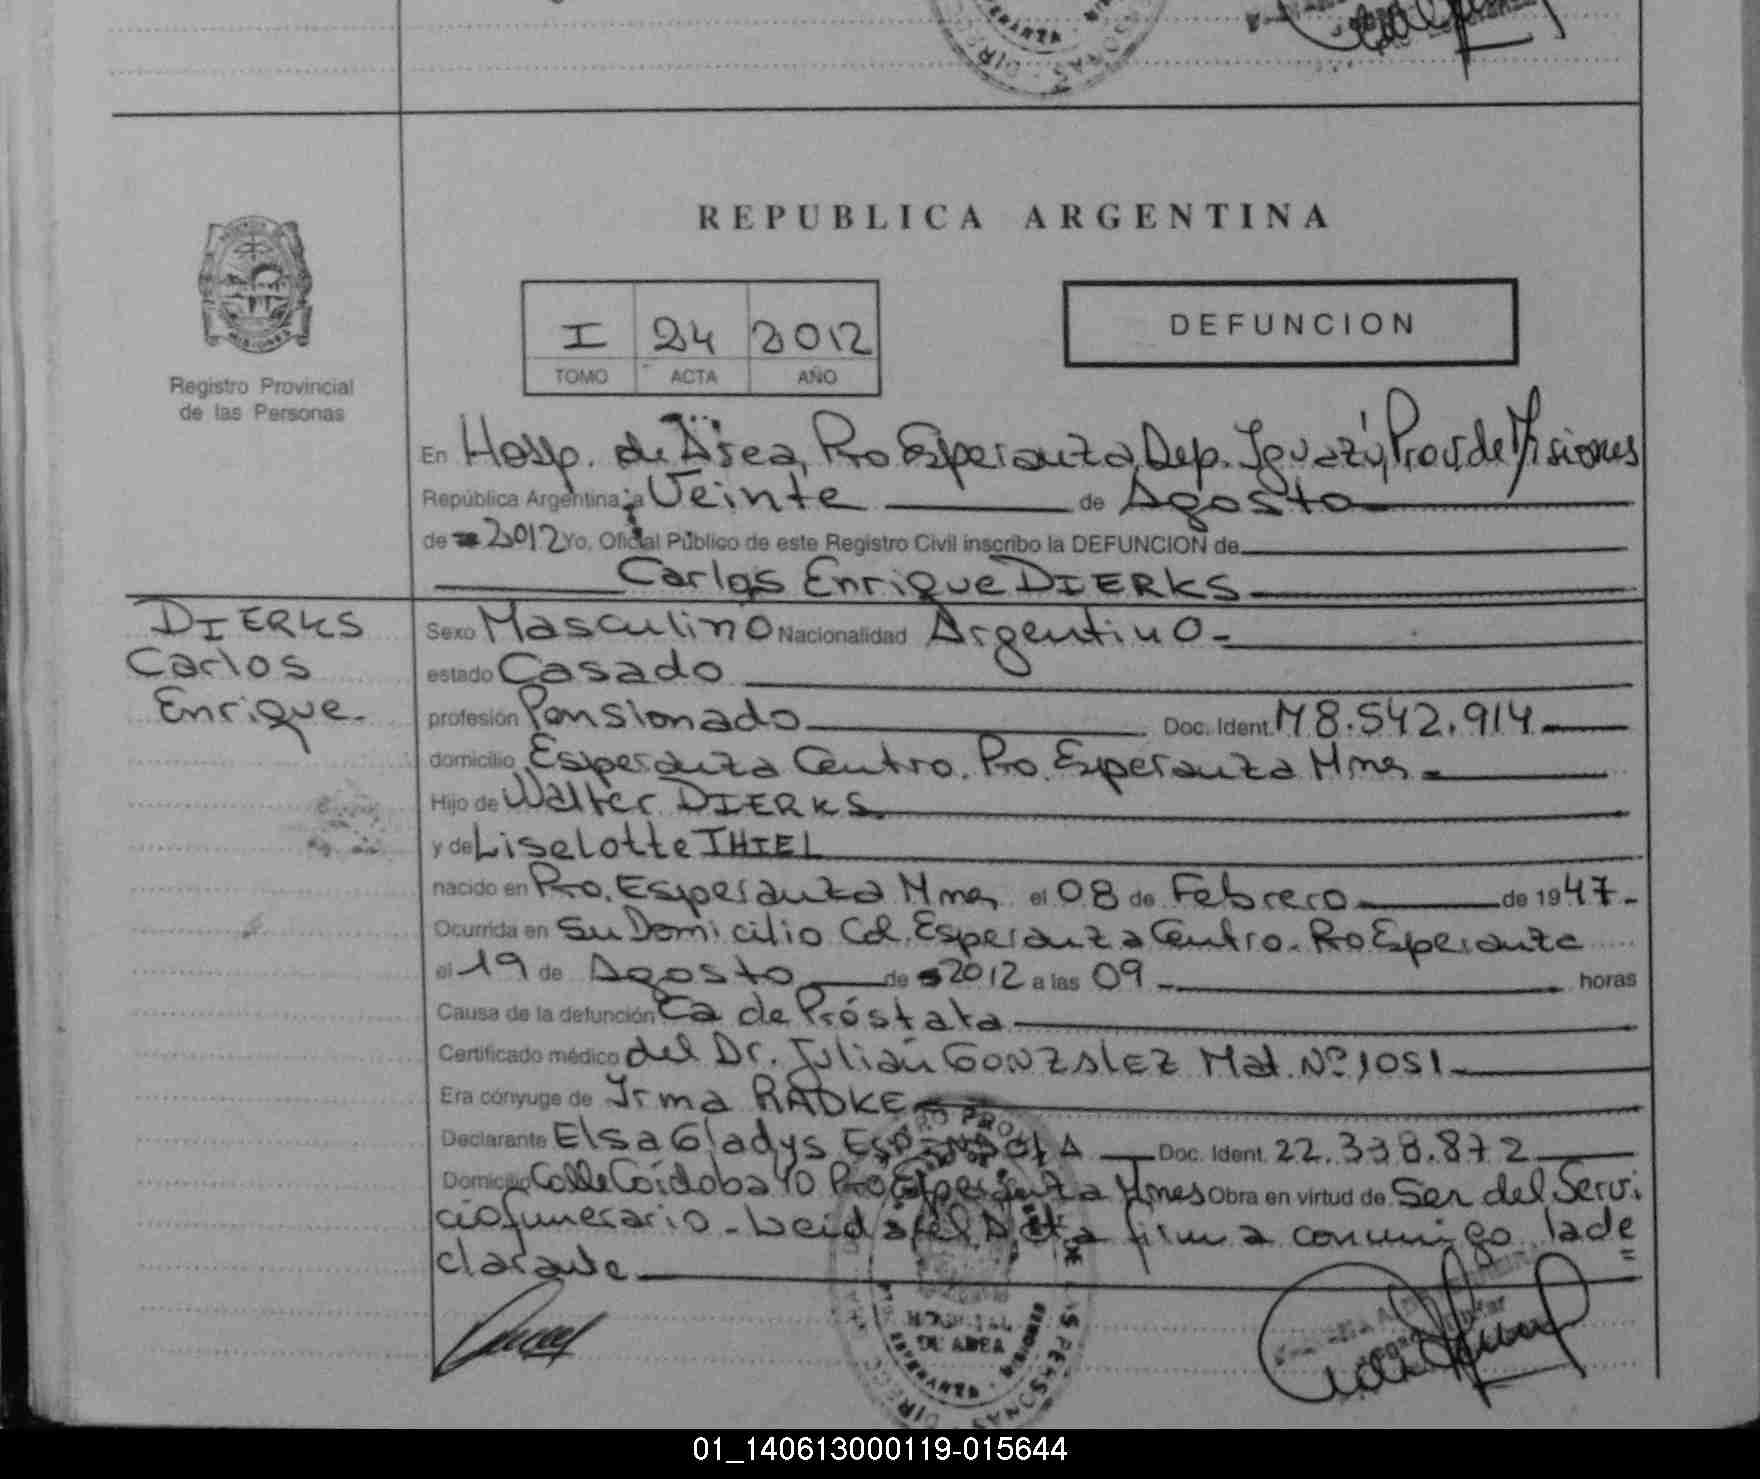 REPUBLICA ARGENTINA
I 24 2012
TOMO ACTA AÑO
DEFUNCION
Registro Provincial
de las Personas
En Hosp. de Área, Pto Esperanza, Dep. Iguazú, Prov. de Misiones
República Argentina, a Veinte de Agosto
de 2012 Yo, Oficial Público de este Registro Civil inscribo la DEFUNCION de
Carlos Enrique DIERKS
DIERKS
Carlos
Enrique.
Sexo Masculino Nacionalidad Argentino-
estado Casado
profesión Pensionado Doc. Ident. M8.542.914
domicilio Esperanza Centro. Pto. Esperanza Mnes
Hijo de Walter DIERKS
y de Liselotte THIEL
nacido en Pto. Esperanza Mnes el 08 de Febrero de 1947-
Ocurrida en Su Domicilio Col. Esperanza Centro. Pto Esperanza
el 19 de Agosto de 2012 a las 09 horas
Causa de la defunción Ca de Próstata
Certificado médico del Dr. Julián GONZALEZ Mat. Nº 1051
Era cónyuge de Irma RADKE
Declarante Elsa Gladys ESPINDOLA Doc. Ident. 22.338.872
Domicilio Calle Córdoba 40 Pto Esperanza Mnes Obra en virtud de Ser del Servi
cio funerario - Leida el Acta firma conmigo la de
clarante
HOSPITAL
DE AREA
01_140613000119-015644